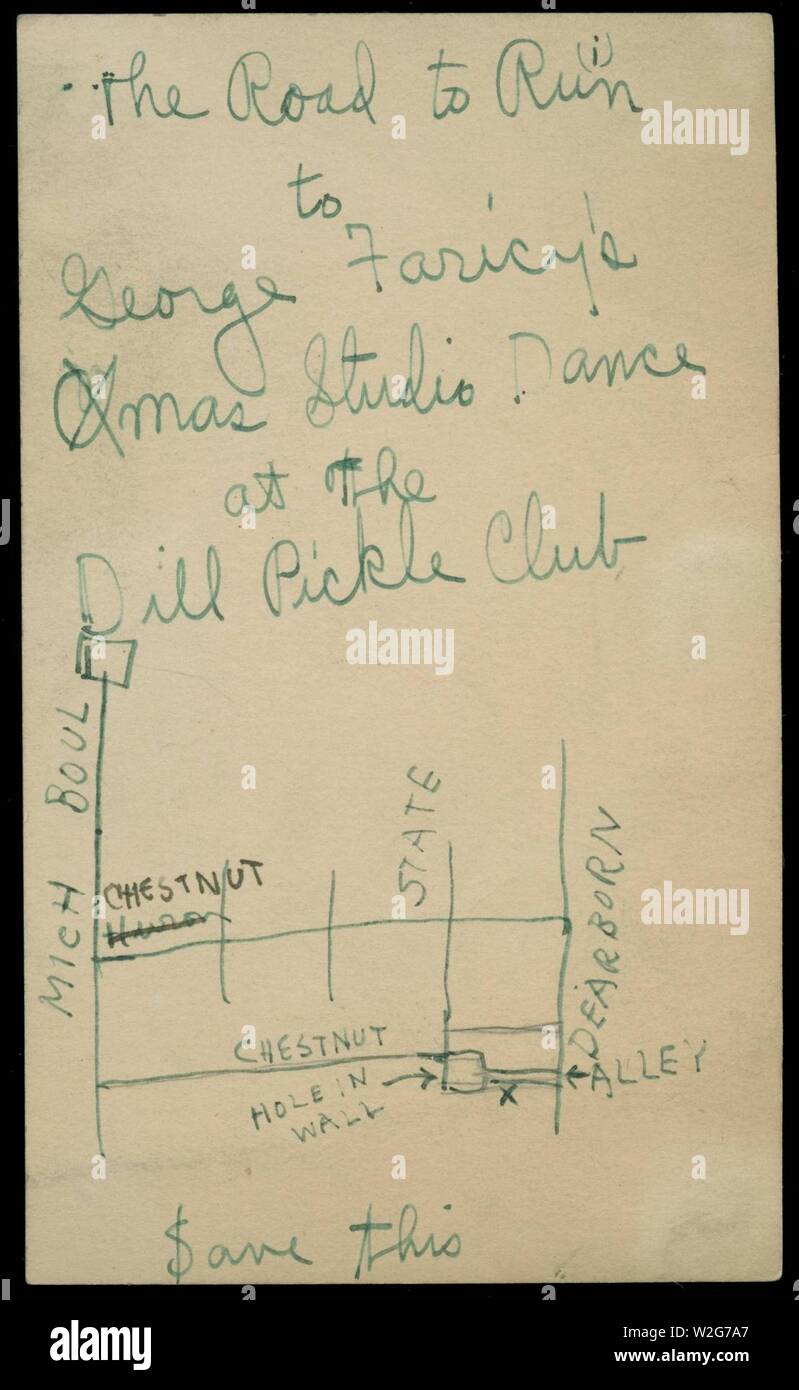 The Road to Ru(i)n
to
George Faricy's
Xmas Studio Dance
at the
Dill Pickle Club
MICH BOUL
STATE
CHESTNUT
Huron
DEARBORN
CHESTNUT
HOLE IN
WALL
X
ALLEY
$ave this
alamy
a
alamy
Image ID: W2G7A7
www.alamy.com